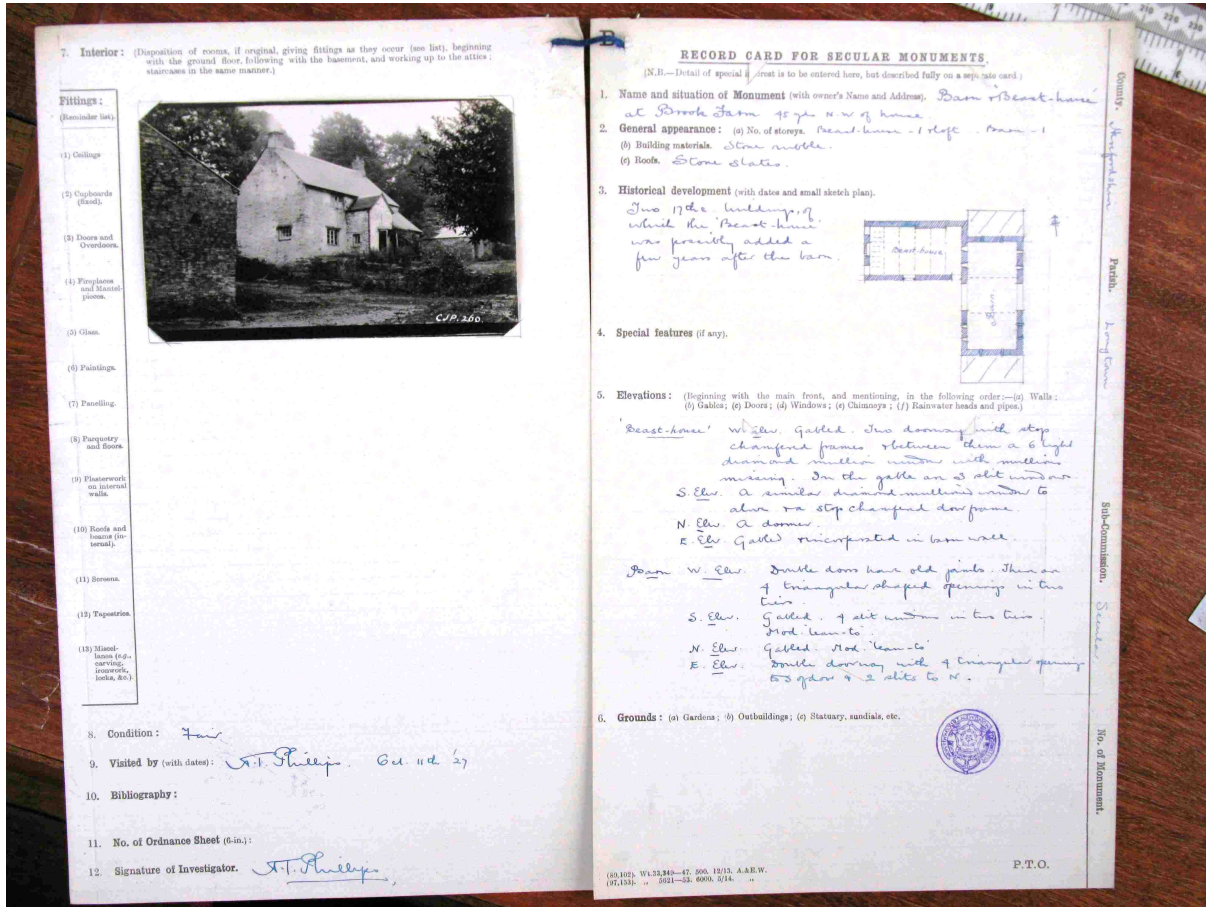 7. Interior : (Disposition of rooms, if original, giving fittings as they occur (see list), beginning
with the ground floor, following with the basement, and working up to the attics ;
staircases in the same manner.)
Fittings :
(Reminder list).
(1) Ceilings
(2) Cupboards
(fixed).
(3) Doors and
Overdoors.
(4) Fireplaces
and Mantel-
pieces.
(5) Glass.
(6) Paintings.
(7) Panelling.
(8) Parquetry
and floors.
(9) Plasterwork
on internal
walls.
(10) Roofs and
beams (in-
ternal).
(11) Screens.
(12) Tapestries.
(13) Miscel-
lanea (e.g.,
carving,
ironwork,
locks, &c.)
CJP. 260.
8. Condition : Fair
9. Visited by (with dates) : A.T. Phillips. Oct. 11th '27
10. Bibliography :
11. No. of Ordnance Sheet (6-in.) :
12. Signature of Investigator. A.T. Phillips
RECORD CARD FOR SECULAR MONUMENTS.
(N.B.—Detail of special interest is to be entered here, but described fully on a separate card.)
1. Name and situation of Monument (with owner's Name and Address). Barn & 'Beast-house'
at Brook Farm 45 yds N.W of house.
2. General appearance : (a) No. of storeys. Beast-house - 1 & loft. Barn - 1
(b) Building materials. Stone rubble.
(c) Roofs. Stone slates.
3. Historical development (with dates and small sketch plan).
Two 17th c. buildings, of
which the 'Beast-house'
was possibly added a
few years after the barn.
Beast-house
Barn
4. Special features (if any).
5. Elevations : (Beginning with the main front, and mentioning, in the following order :—(a) Walls ;
(b) Gables ; (c) Doors ; (d) Windows ; (e) Chimneys ; (f) Rainwater heads and pipes.)
'Beast-house' W. Elev. Gabled. Two doorways with stop
chamfered frames & between them a 6 light
diamond mullion window with mullions
missing. In the gable are 3 slit windows.
S. Elev. A similar diamond-mullioned window to
above & a stop chamfered doorframe.
N. Elev. A dormer.
E. Elev. Gabled & incorporated in barn wall.
Barn W. Elev. Double doors have old jambs. There are
4 triangular shaped openings in two
tiers.
S. Elev. Gabled. 4 slit windows in two tiers.
Mod. 'lean-to'.
N. Elev. Gabled. Mod. 'lean-to'
E. Elev. Double doorway with 4 triangular openings
to S of door & 2 slits to N.
6. Grounds : (a) Gardens ; (b) Outbuildings ; (c) Statuary, sundials, etc.
(89,102). Wt.32,349—47. 500. 12/13. A.&E.W.
(97,153). ,, 5621—53. 6000. 5/14. ,,
P.T.O.
County. Herefordshire
Parish. Longtown
Sub-Commission. Secular
No. of Monument.
210 220 230